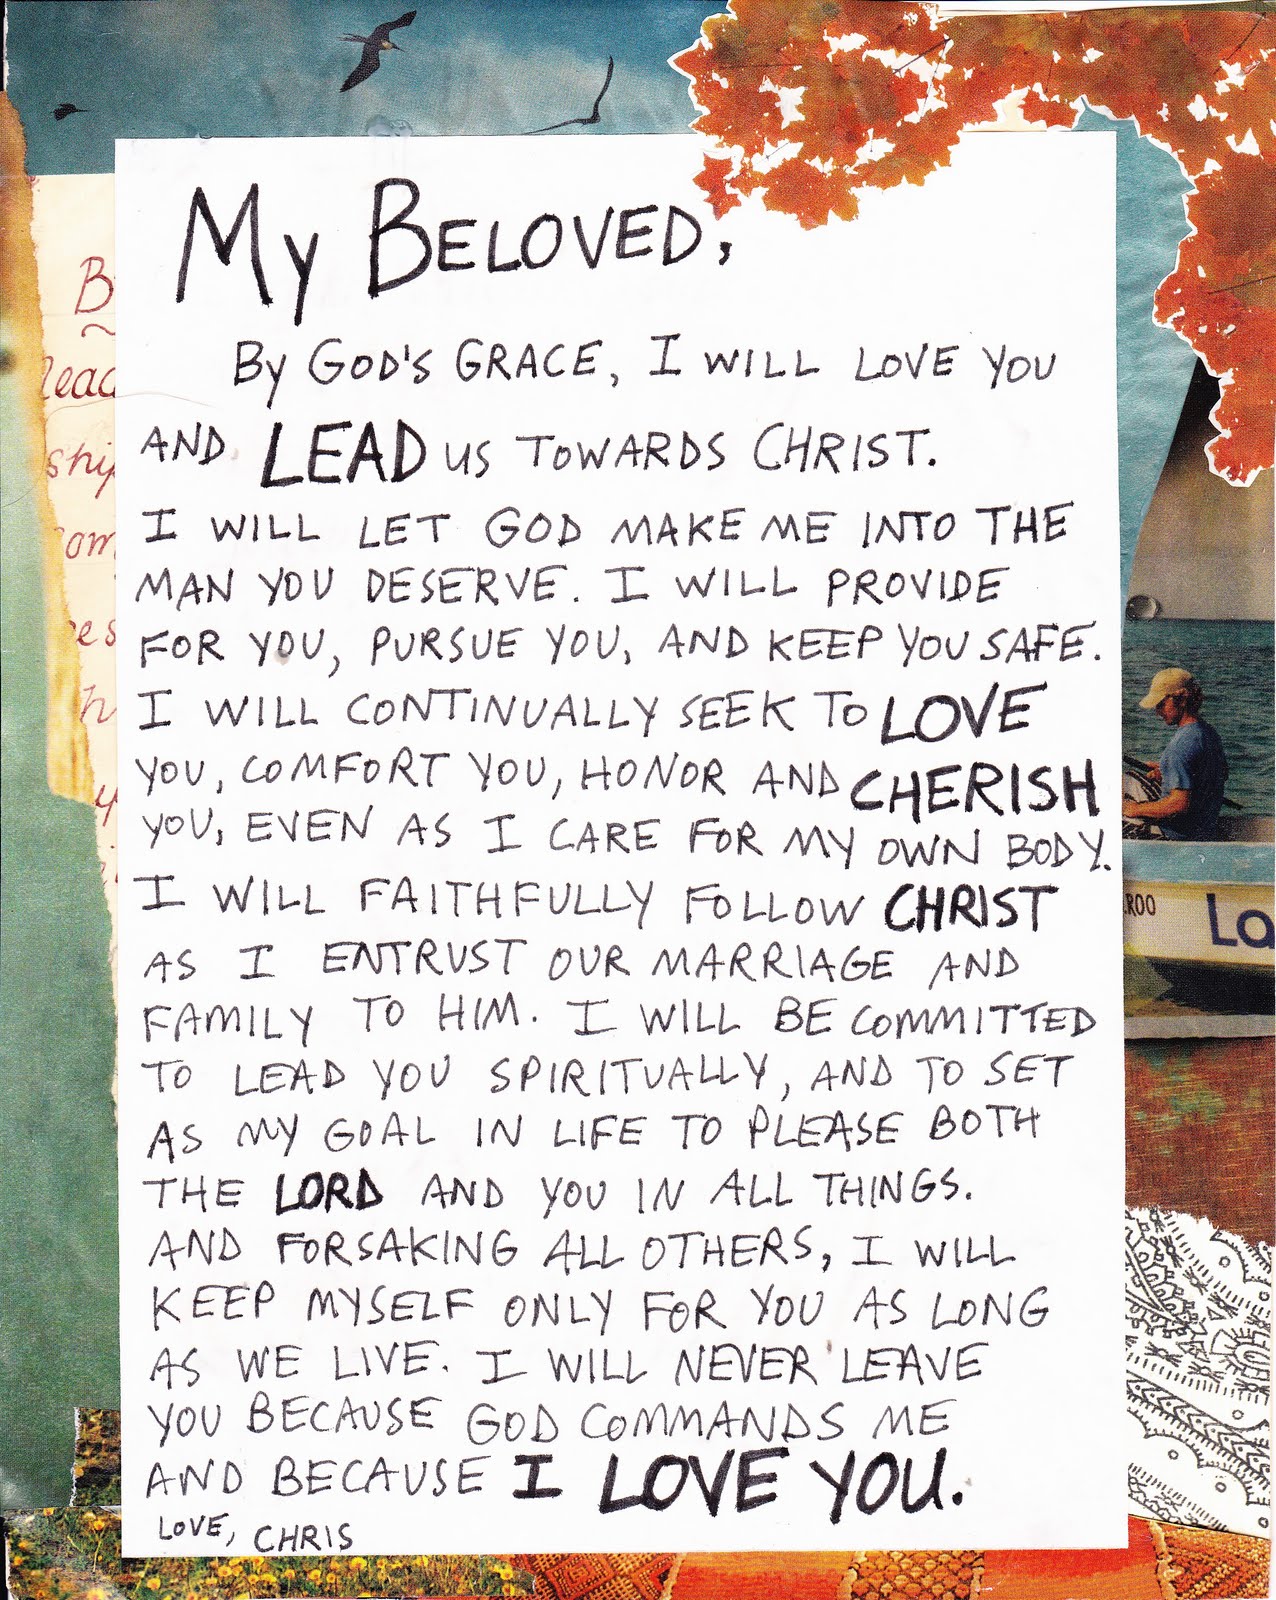 My BELOVED,
By GOD'S GRACE, I WILL LOVE YOU
AND LEAD US TOWARDS CHRIST.
I WILL LET GOD MAKE ME INTO THE
MAN YOU DESERVE. I WILL PROVIDE
FOR YOU, PURSUE YOU, AND KEEP YOU SAFE.
I WILL CONTINUALLY SEEK TO LOVE
YOU, COMFORT YOU, HONOR AND CHERISH
YOU, EVEN AS I CARE FOR MY OWN BODY.
I WILL FAITHFULLY FOLLOW CHRIST
AS I ENTRUST OUR MARRIAGE AND
FAMILY TO HIM. I WILL BE COMMITTED
TO LEAD YOU SPIRITUALLY, AND TO SET
AS MY GOAL IN LIFE TO PLEASE BOTH
THE LORD AND YOU IN ALL THINGS.
AND FORSAKING ALL OTHERS, I WILL
KEEP MYSELF ONLY FOR YOU AS LONG
AS WE LIVE. I WILL NEVER LEAVE
YOU BECAUSE GOD COMMANDS ME
AND BECAUSE I LOVE YOU.
LOVE, CHRIS
ROO La